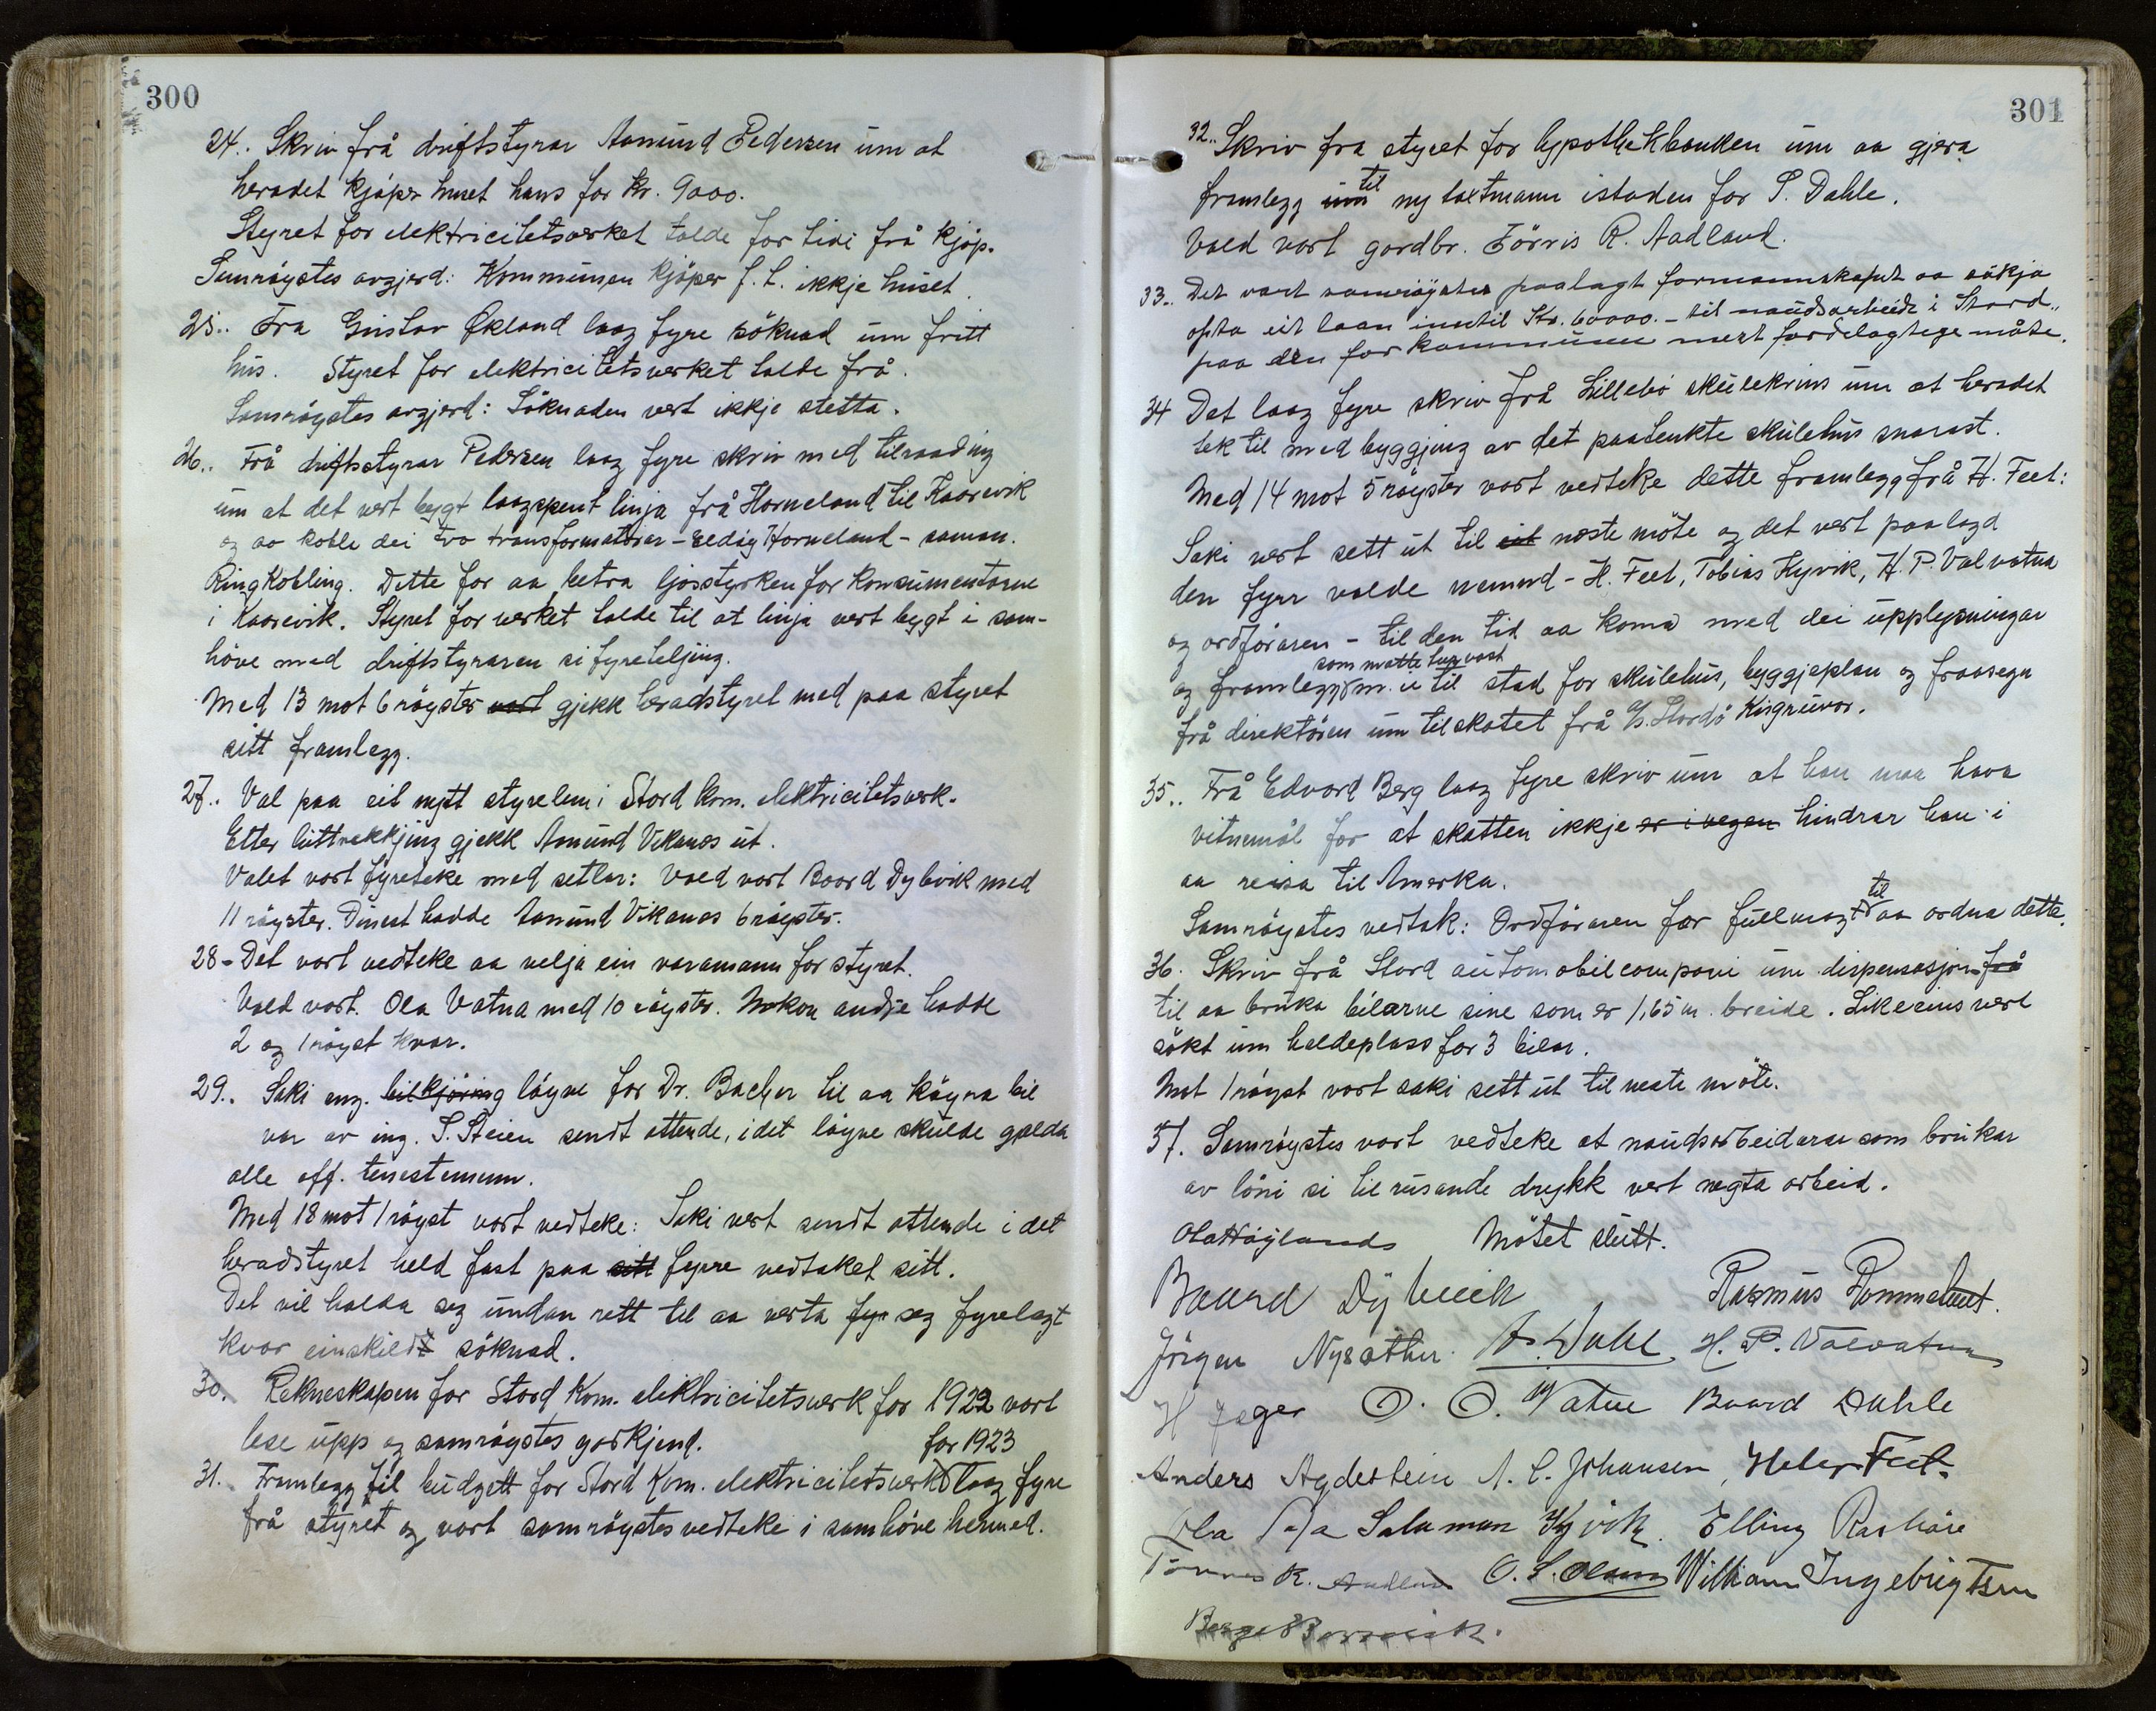 300
24.. Skriv frå driftstyrar Aamund Pedersen um at
heradet kjøper huset hans for kr. 9000.
Styret for elektricitetsverket talde for tidi frå kjøp.
Samrøystes avgjerd: Kommunen kjøper f. t. ikkje huset.
25.. Fra Gustav Økland laag fyre söknad um fritt
hus. Styret for elektricitetsverket talde frå.
Samröystes avgjerd: Söknaden vert ikkje stetta.
26.. Frå driftstyrar Pedersen laag fyre skriv med tilraading
um at det vert bygt laagspent linja frå Horneland til Kaarevik
og aa koble dei tvo transformatorar - Eldøy Horneland - saman.
Ringkobling. Dette for aa betra ljosstyrken for konsumentarne
i Kaarevik. Styret for verket talde til at linja vert bygt i sam-
höve med driftstyraren si fyreteljing.
Med 13 mot 6 röyster vart gjekk heradstyret med paa styret
sitt framlegg.
27.. Val paa eit nytt styrelem i Stord kom. elektricitetsverk.
Etter luttrekkjing gjekk Amund Vikanes ut.
Valet vart fyreteke med setlar: Vald vart Baard Dybvik med
11 röyster. Dinest hadde Aamund Vikanes 6 röyster.
28 - Det vart vedteke aa velja ein varamann for styret.
Vald vart. Ola Vatna med 10 röyster. Nokon andre hadde
2 og 1 röyst kvar.
29.. Saki ang. bilkjöring löyve for Dr. Bacher til aa köyra bil
var av ing. S. Steien sendt attende, idet löyve skulde gjelda
alle off. tenestemenn.
Med 18 mot 1 röyst vart vedteke: Saki vert sendt attende i det
heradstyret held fast paa sitt fyrre vedtaket sitt.
Det vil halda seg undan rett til aa verta fyr seg fyrelagt
kvar einskild söknad.
30. Rekneskapen for Stord Kom. elektricitetsverk for 1922 vart
lese upp og samröystes godkjend.
for 1923
31. Framlegg til budgett for Stord Kom. elektricitetsverk laag fyre
frå styret og vart samröystes vedteke i samhöve hermed.
301
32.. Skriv fra styret for hypothekbanken um aa gjera
til
framlegg um ny takstmann istaden for S. Dahle.
Vald vart gardbr. Törris R. Aadland.
33.. Det vart samröystes paalagt formannskapet aa sökja
opta eit laan inntil Kr. 60000.- til naudsarbeide i Stord..
paa den for kommunen mest fordelagtege måte.
34 Det laag fyre skriv frå Lillebö skulekrins um at heradet
tek til med byggjing av det paatenkte skulehus snarast.
Med 14 mot 5 röyster vart vedteke dette framlegg frå H. Feet:
Saki vert sett ut til eit næste möte og det vert paalagd
den fyrr valde nemnd - H. Feet, Tobias Kyvik, H. P. Valvatna
og ordföraren - til den tid aa koma med dei upplysningar
og framlegg m. u. til stad for skulehus, byggjeplan og fraasegn
frå direktören um tilskotet frå A/s. Stordö Kisgruvor.
35.. Frå Edvard Berg laag fyre skriv um at han maa hava
vitnemål for at skatten ikkje er i vegen hindrar han i
aa reisa til Amerka.
til
Samröystes vedtak: Ordföraren fær fullmagt aa ordna dette.
36. Skriv frå Stord automobilcompani um dispensasjon frå
til aa bruka bilarne sine som er 1,65 m. breide. Likeeins vert
sökt um haldeplass for 3 bilar.
Mot 1 röyst vart saki sett ut til neste möte.
37. Samröystes vart vedteke at naudsarbeidarar som brukar
av löni si til rusande drykk vert negta arbeid.
Ola Höylands Mötet slutt.
Baard Dybvik Rasmus Rommetveit.
Jörgen Nysæther A. Dahl H. P. Valvatna
H Jeger O. O. Vatne Baard Dahle
Anders Agdestein A. C. Johansen, Helge Feet.
Salamon Kyvik. Elling
Törres R. Aadland O. S. Olsen William Ingebrigtsen